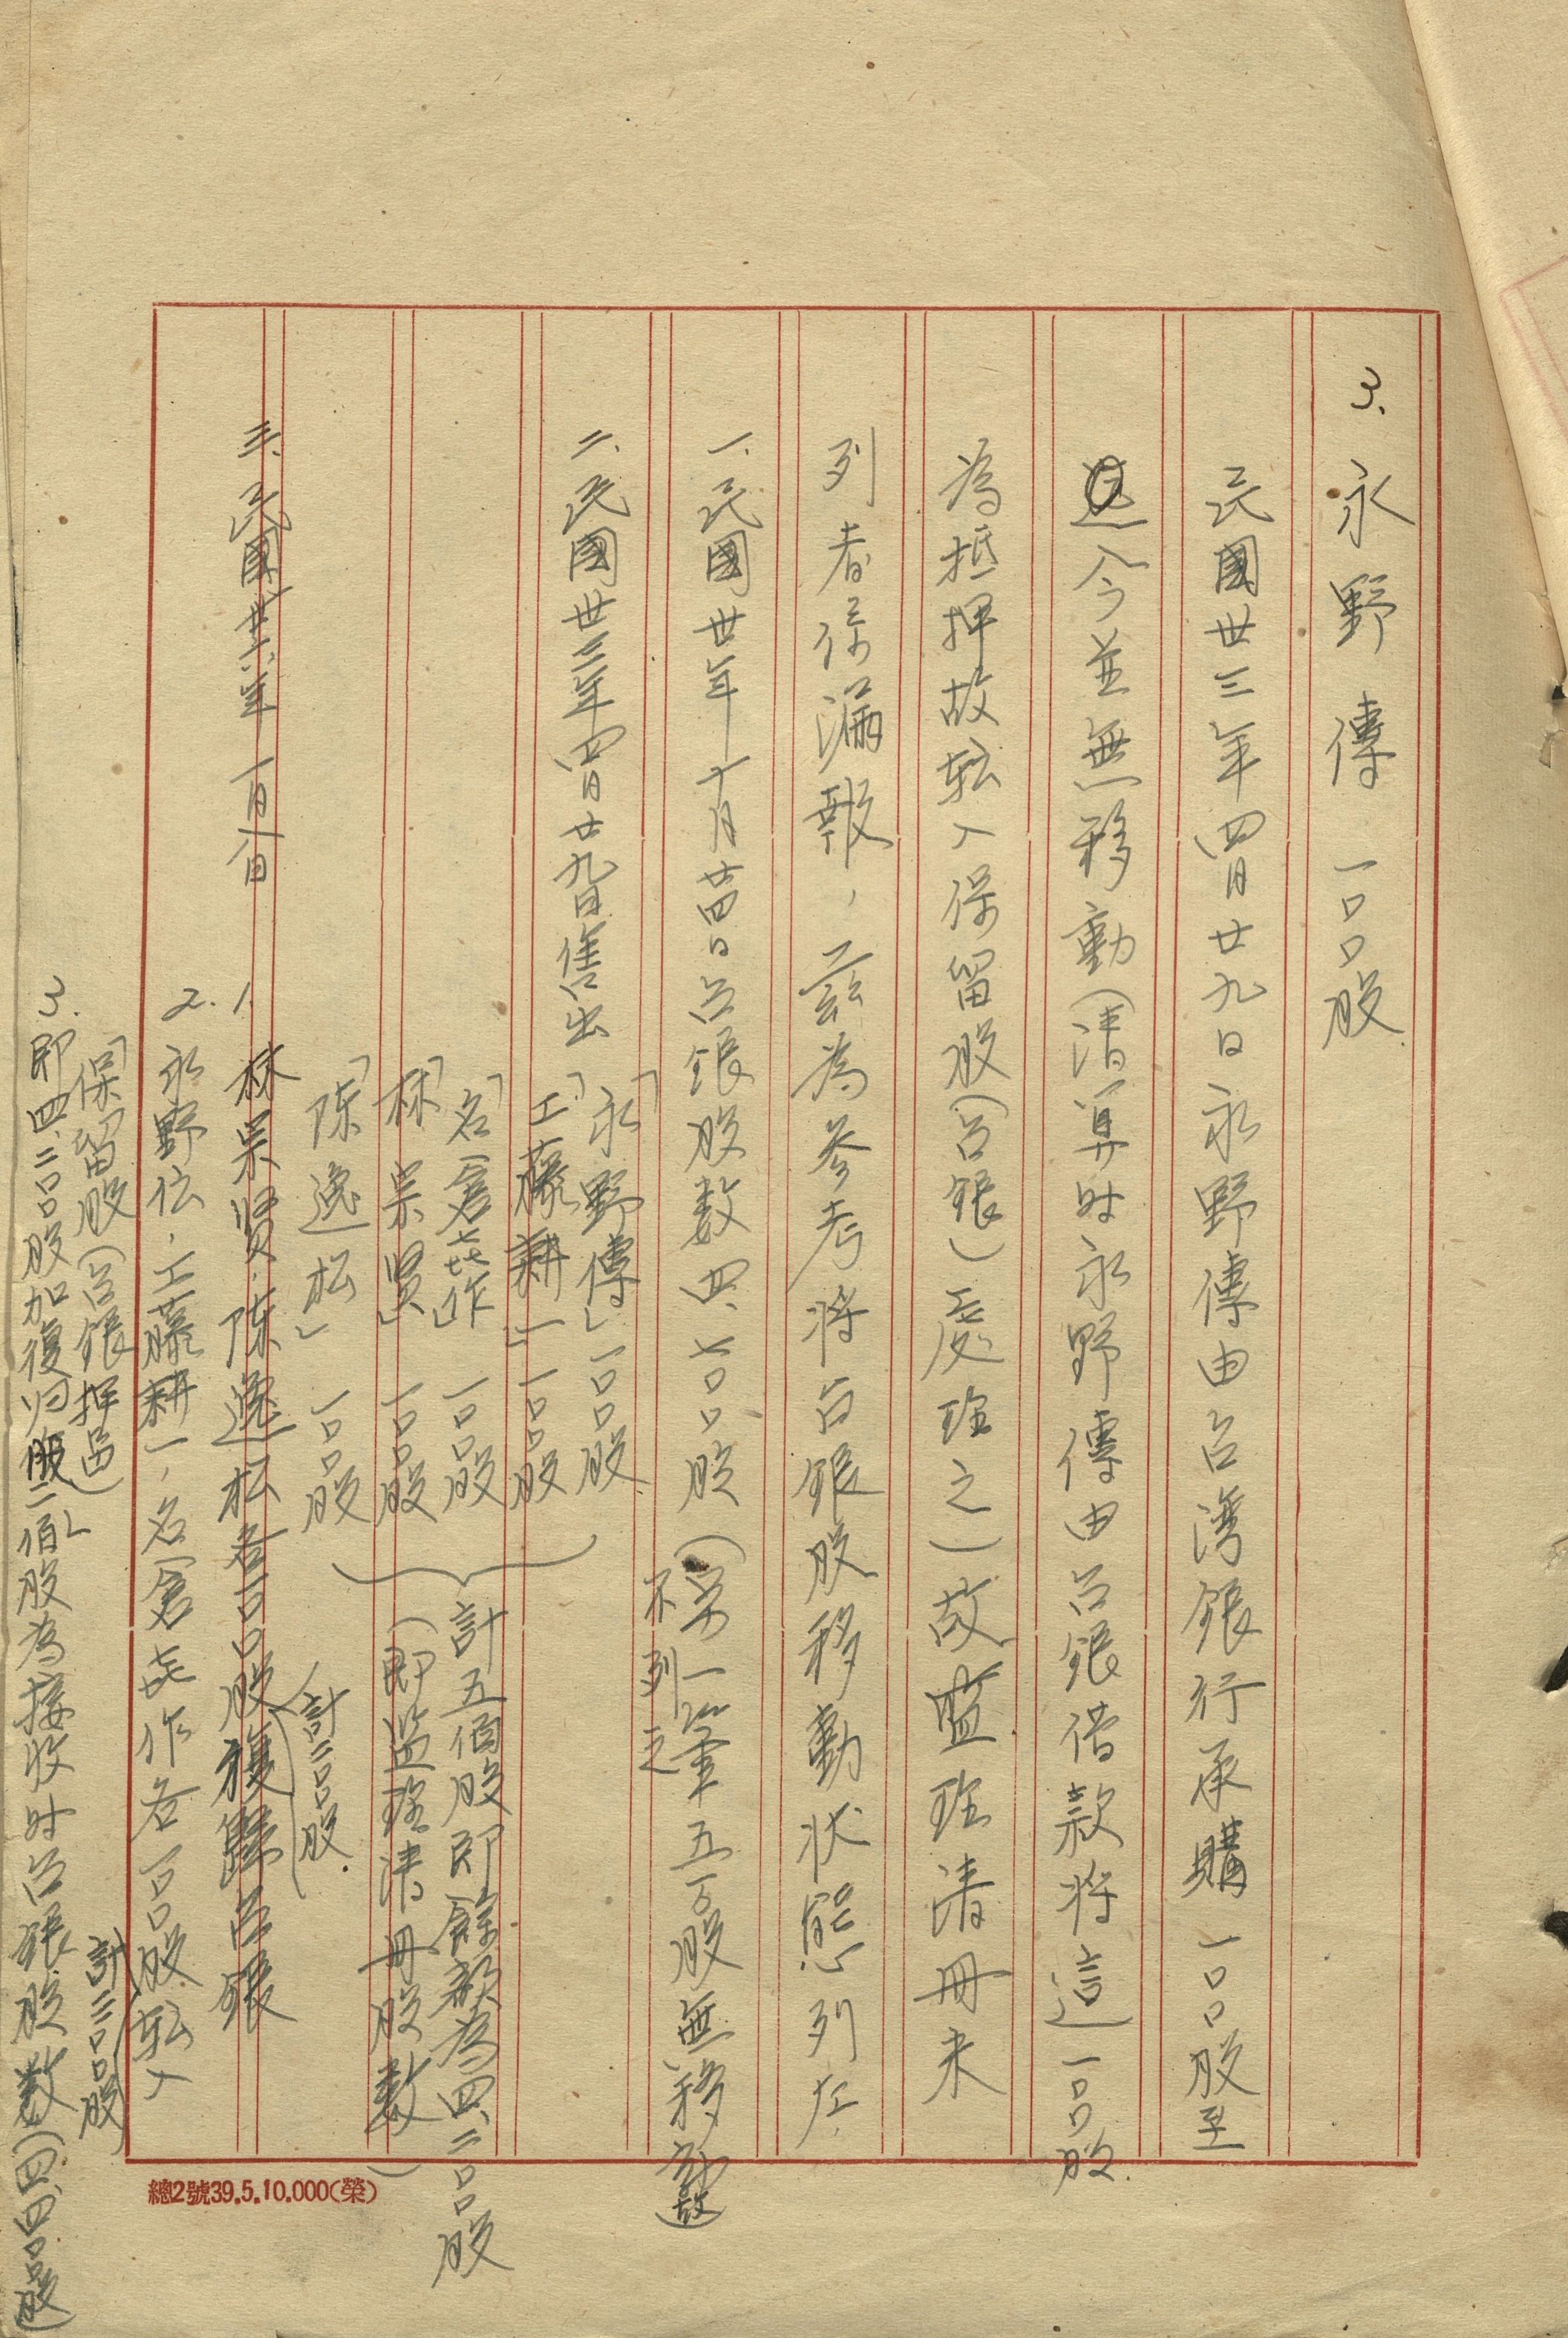 3. 永野傳 一〇〇股
民國卅三年四月廿九日永野傳由台湾銀行承購一〇〇股至
今並無移動(清算时永野傳由台銀借款将這一〇〇股
為抵押故転入保留股(台銀)處理之)故监理清冊未
列者係漏報,茲為参考将台銀股移動状態列左
一、民國卅年十月廿四日台銀股数四、七〇〇股(另一筆五百股無移動故
不列之
二、民國卅三年四月廿九日售出
「永野傳」一〇〇股
「工藤耕一」一〇〇股
「名倉㐂作」一〇〇股
「林宗賢」一〇〇股
「陳逸松」一〇〇股
計五佰股即餘額為四、二〇〇股
(即监理清冊股数)
三、民國卅六年一月八日
1. 林宗贤、陳逸松各一百〇股複歸台銀
(計二〇〇股.
2. 永野伝,工藤耕一,名倉㐂作各一〇〇股転入
「保留股(台銀押品)」
計三〇〇股
3. 即四、二〇〇股加復归股二佰股為接收时台銀股数(四、四〇〇股)
總2號39.5.10.000(榮)